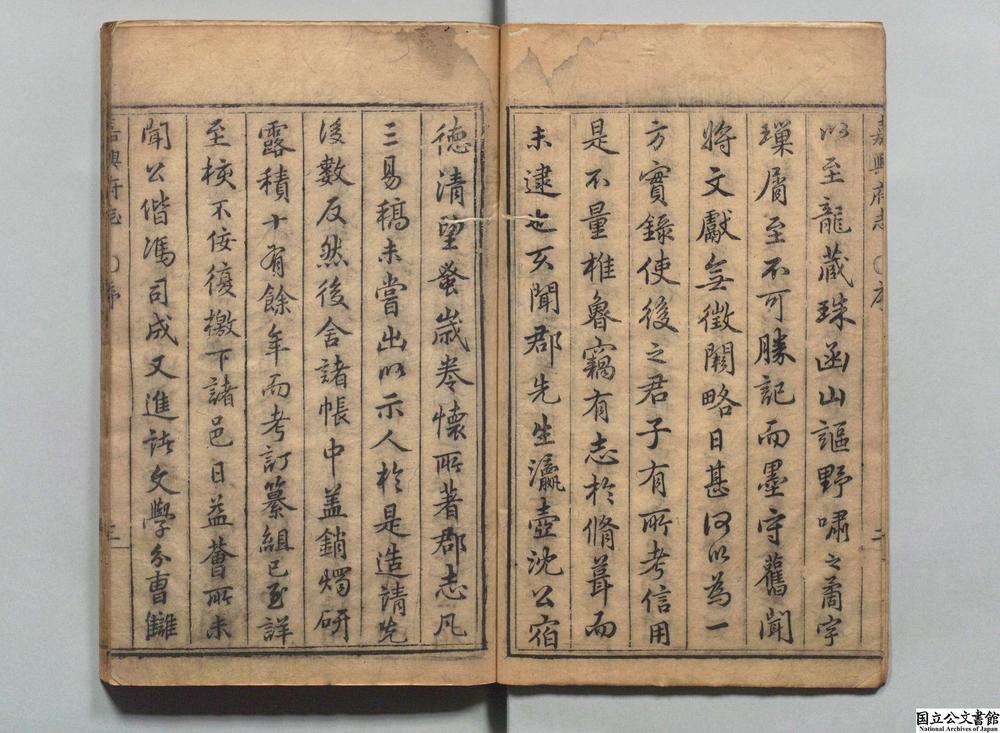 以至龍蔵珠函山謳野嘯之啇字
璅屑至不可勝記而墨守舊聞
將文獻無徵闕略日甚何以為一
方實錄使後之君子有所考信用
是不量椎魯竊有志於脩葺而
未逮也亥聞郡先生瀛壺沈公宿
德清望蚤歲卷懷所著郡志凡
三易稿未嘗出以示人於是造請凢
後數反然後舍諸帳中盖銷燭研
露積十有餘年而考訂纂組已至詳
至核不佞復檄下諸邑日益薈所未
聞公偕馮司成又進諸文學分曹讎
嘉興府志
序
二
嘉興府志
序
三
国立公文書館
National Archives of Japan